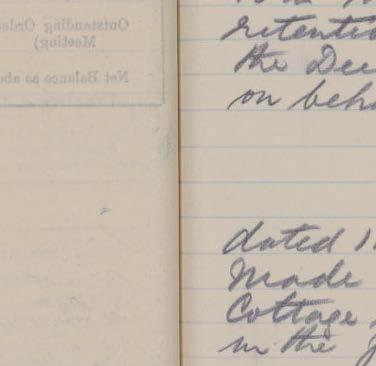 Outstanding Orde
Meeting)
Net Balance as abo
retenti
the Dee
on beha
dated 1
Made
Cottage,
in the